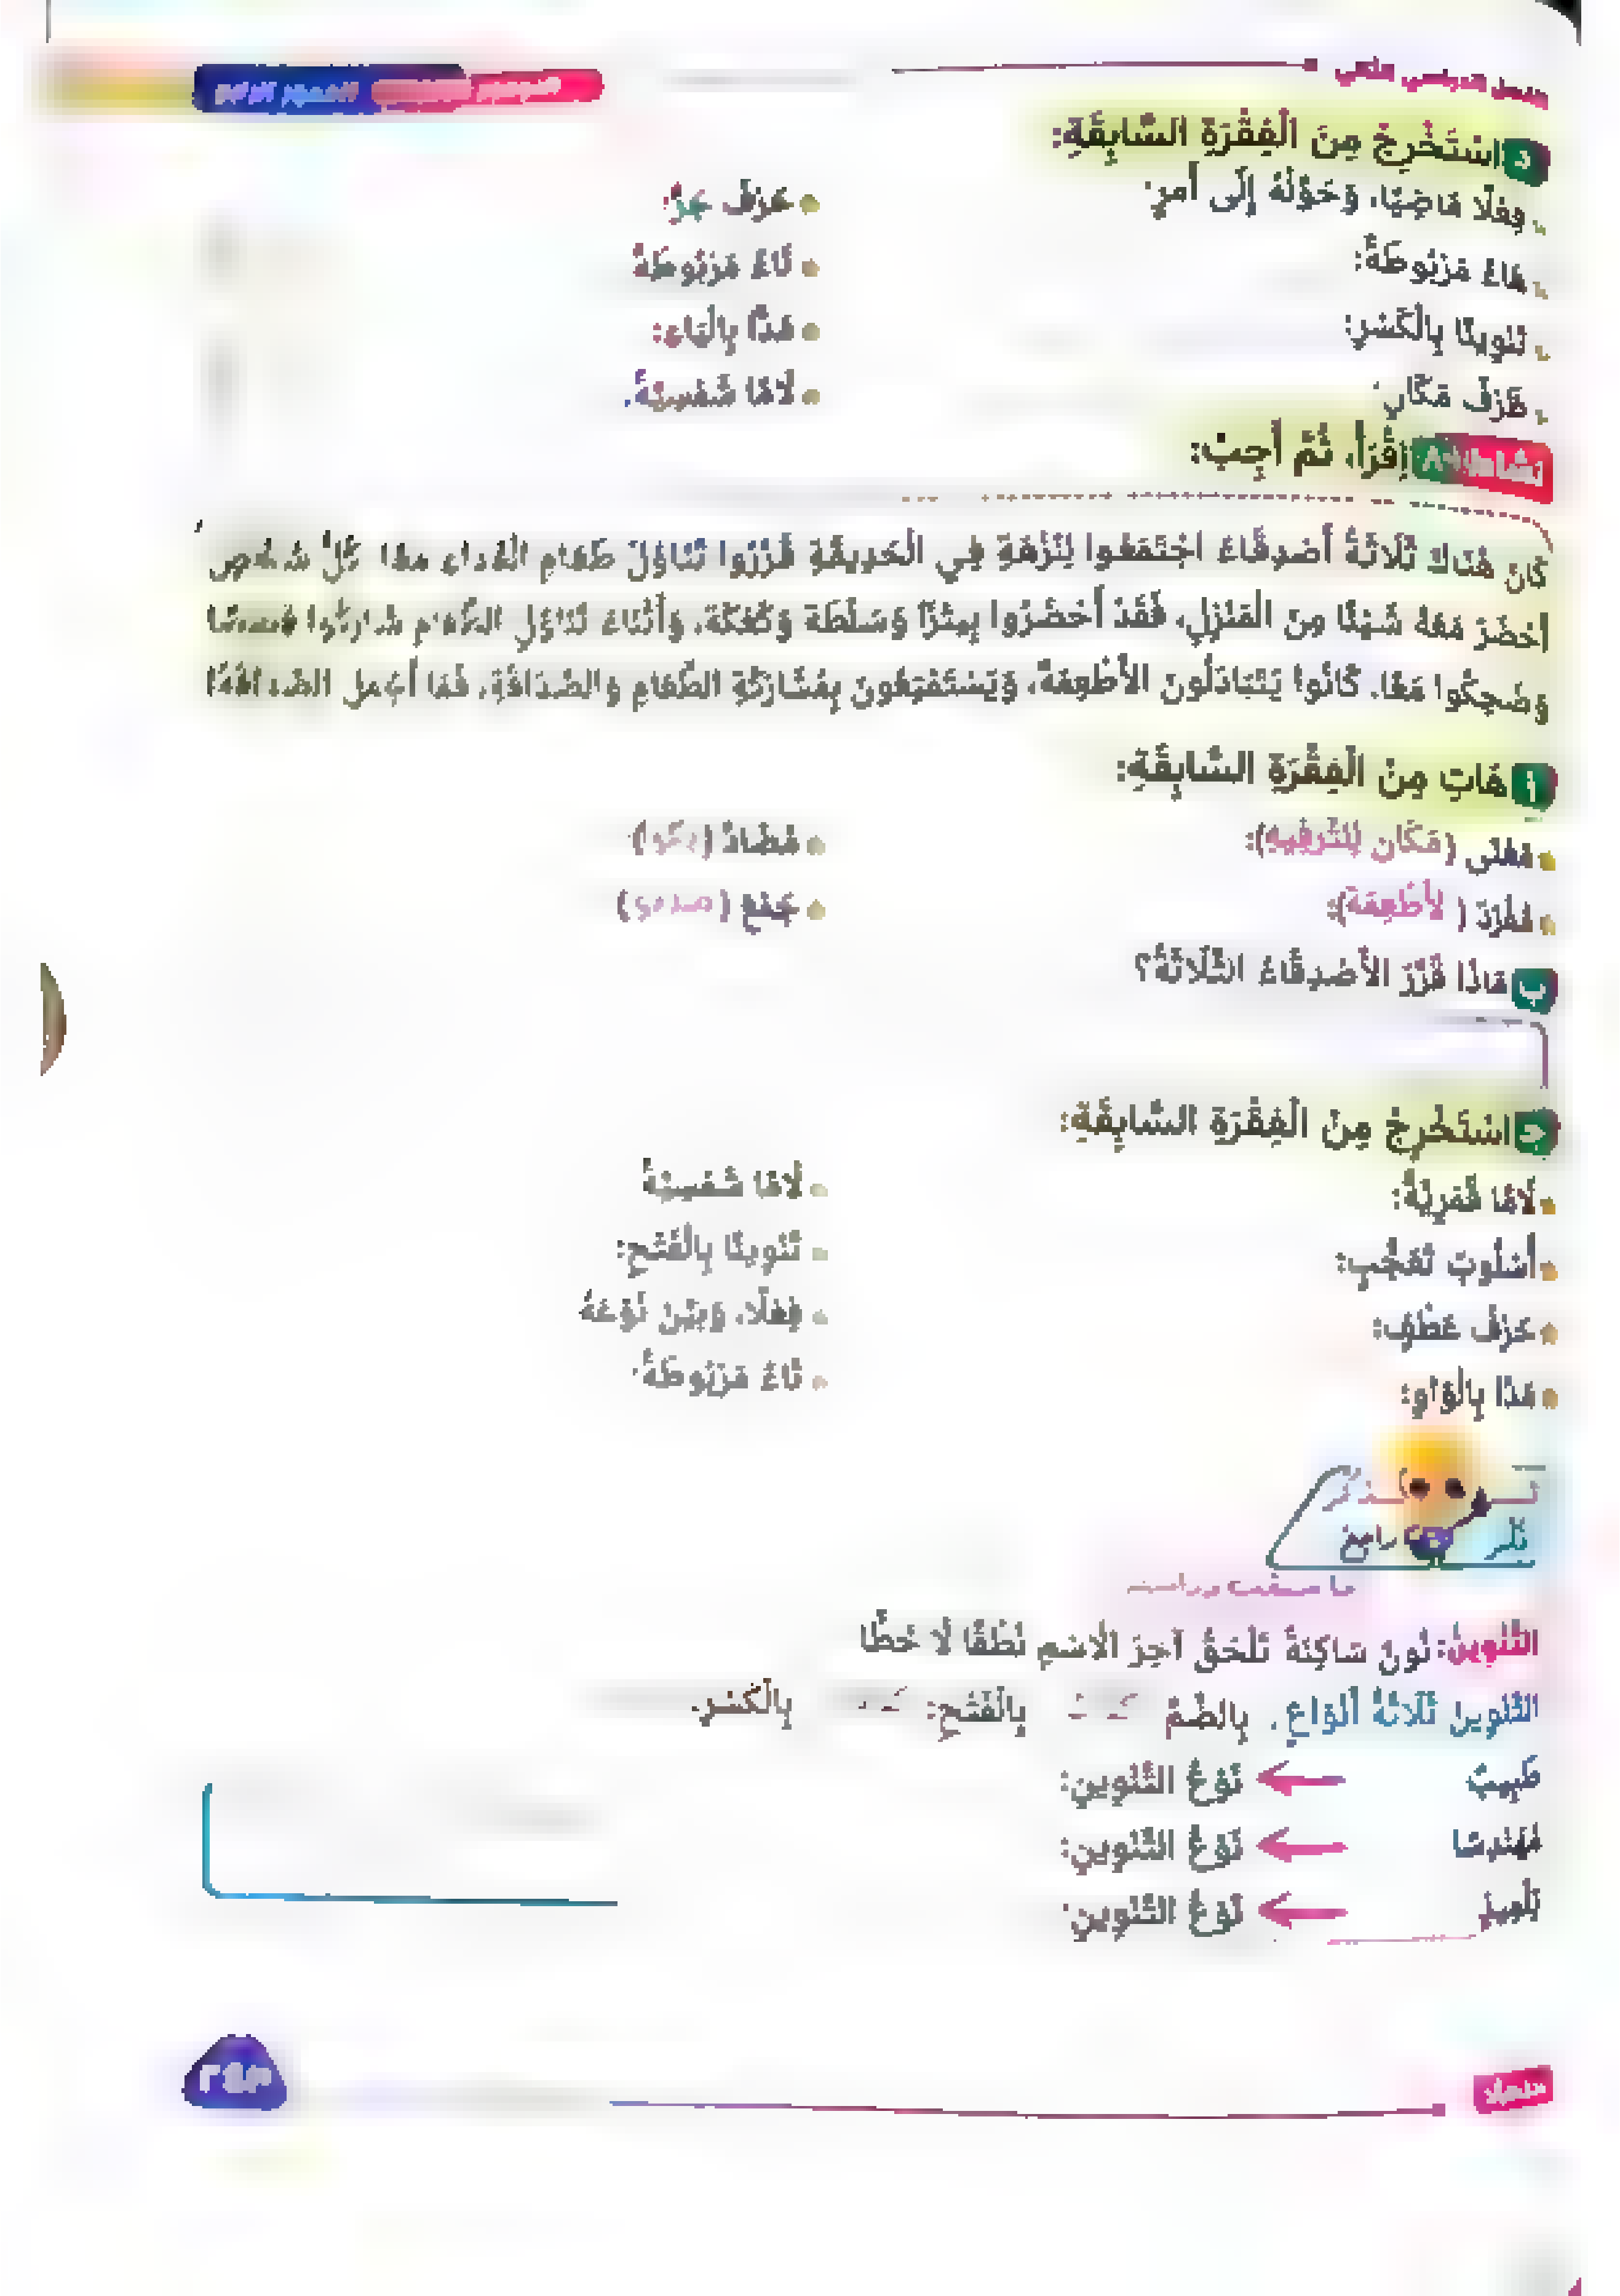 د اسْتَخْرِجْ مِنَ الْفِقْرَةِ السَّابِقَةِ:
فِعْلًا مَاضِيًا، وَحَوِّلْهُ إِلَى أَمرٍ:
حَرْفَ جَرٍّ:
هَاءً مَرْبُوطَةً:
تَاءً مَرْبُوطَةً
تَنْوِينًا بِالْكَسْرِ:
مَدًّا بِالْيَاءِ:
ظَرْفَ مَكَانٍ:
لَامًا شَمْسِيَّةً:
نشاط اقْرَأْ، ثُمَّ أَجِبْ:
كَانَ هُنَاكَ ثَلَاثَةُ أَصْدِقَاءَ اجْتَمَعُوا لِنُزْهَةٍ فِي الْحَدِيقَةِ قَرَّرُوا تَنَاوُلَ طَعَامِ الْغَدَاءِ معًا كُلُّ شَخْصٍ
أَحْضَرَ مَعَهُ شَيْئًا مِنَ الْمَنْزِلِ، فَقَدْ أَحْضَرُوا بِيتْزَا وَسَلَطَة وَكَعْكَة، وَأَثْنَاءَ تَنَاوُلِ الطَّعَامِ شَارَكُوا قِصَصًا
وَضَحِكُوا مَعًا، كَانُوا يَتَبَادَلُونَ الْأَطْعِمَةَ، وَيَسْتَمْتِعُونَ بِمُشَارَكَةِ الطَّعَامِ وَالصَّدَاقَةِ، فَمَا أَجْمل الصَّدَاقَةَ!
أ هَاتِ مِنْ الْفِقْرَةِ السَّابِقَةِ:
مَعْنَى (مَكَان لِلتَّرفِيهِ):
مُضَادَّ (بكوا)
مُفْرَدَ (الأَطْعِمَة):
جَمْعَ (صديق)
ب مَاذَا قَرَّرَ الأَصْدِقَاءُ الثَّلَاثَةُ؟
ج اسْتَخْرِجْ مِنْ الْفِقْرَةِ السَّابِقَةِ:
لَامًا قَمَرِيَّةً:
لَامًا شَمْسِيَّةً
أُسْلُوبَ تَعَجُّبٍ:
تَنْوِينًا بِالْفَتْحِ:
حَرْفَ عَطْفٍ:
فِعْلًا، وَبَيِّنْ نَوْعَهُ
مَدًّا بِالْوَاوِ:
تَاءً مَرْبُوطَةً:
ما سبقت دراسته
التَّنْوِينُ: نُونٌ سَاكِنَةٌ تَلْحَقُ آخِرَ الْاسْمِ نُطْقًا لَا خَطًّا
التَّنْوِين ثَلَاثَةُ أَنْوَاعٍ، بِالضَّمِّ بِالْفَتْحِ: بِالْكَسْرِ.
طَبِيبٌ ← نَوْعُ التَّنْوِينِ:
مُهَنْدِسًا ← نَوْعُ التَّنْوِينِ:
تِلْمِيذٍ ← نَوْعُ التَّنْوِينِ: